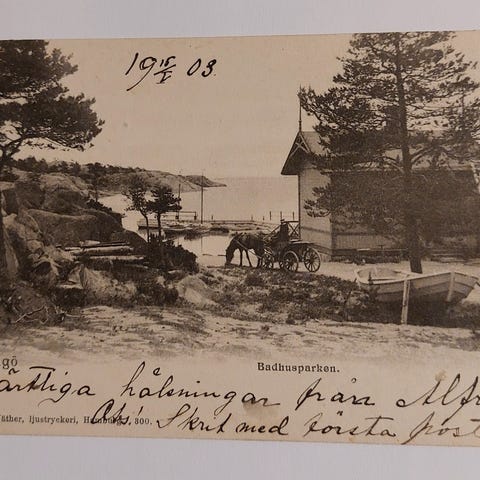 19 15/5 03.
gö
Badhusparken.
ärtliga hälsningar från Alfr
Väther, ljustryckeri, Hamburg, 300.
Skrif med första post